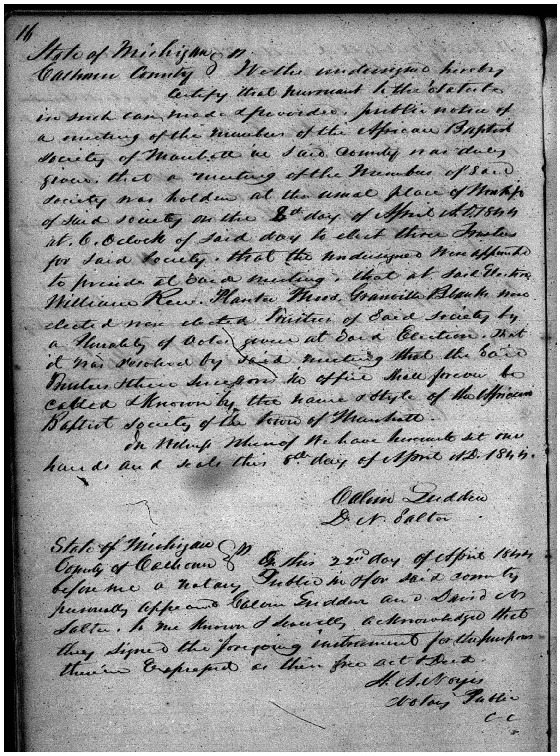 16
State of Michigan } ss
Calhoun County } We the undersigned hereby
Certify that pursuant to the Statute
in such case made & provided, public notice of
a meeting of the members of the African Baptist
Society of Marshall in said County was duly
given, that a meeting of the Members of Said
Society was holden at the usual place of Worship
of said society on the 8th day of April A.D. 1844
at 6. Oclock of said day to elect three Trustees
for said Society, that the undersigned were appointed
to preside at said meeting, that at said Election
William Granville Blanks were
elected were elected Trustees of Said Society by
a Plurality of votes given at Said Election. That
it was resolved by said meeting that the said
Trustees & their Successors in office shall forever be
called & Known by the name & Style of the African
Baptist Society of the Town of Marshall.
In Witness Whereof We have hereunto set our
hands and seals this 8th day of April A.D. 1844.
Calvin
D. N. Salter
State of Michigan } ss
County of Calhoun } On this 22nd day of April 1844
before me a Notary Public in & for said county
personally appeared Calvin and David N
Salter, to me known & severally acknowledged that
they signed the foregoing instrument for the purposes
therein Expressed as their free act & Deed.
H. A. Noyes
Notary Public
C C